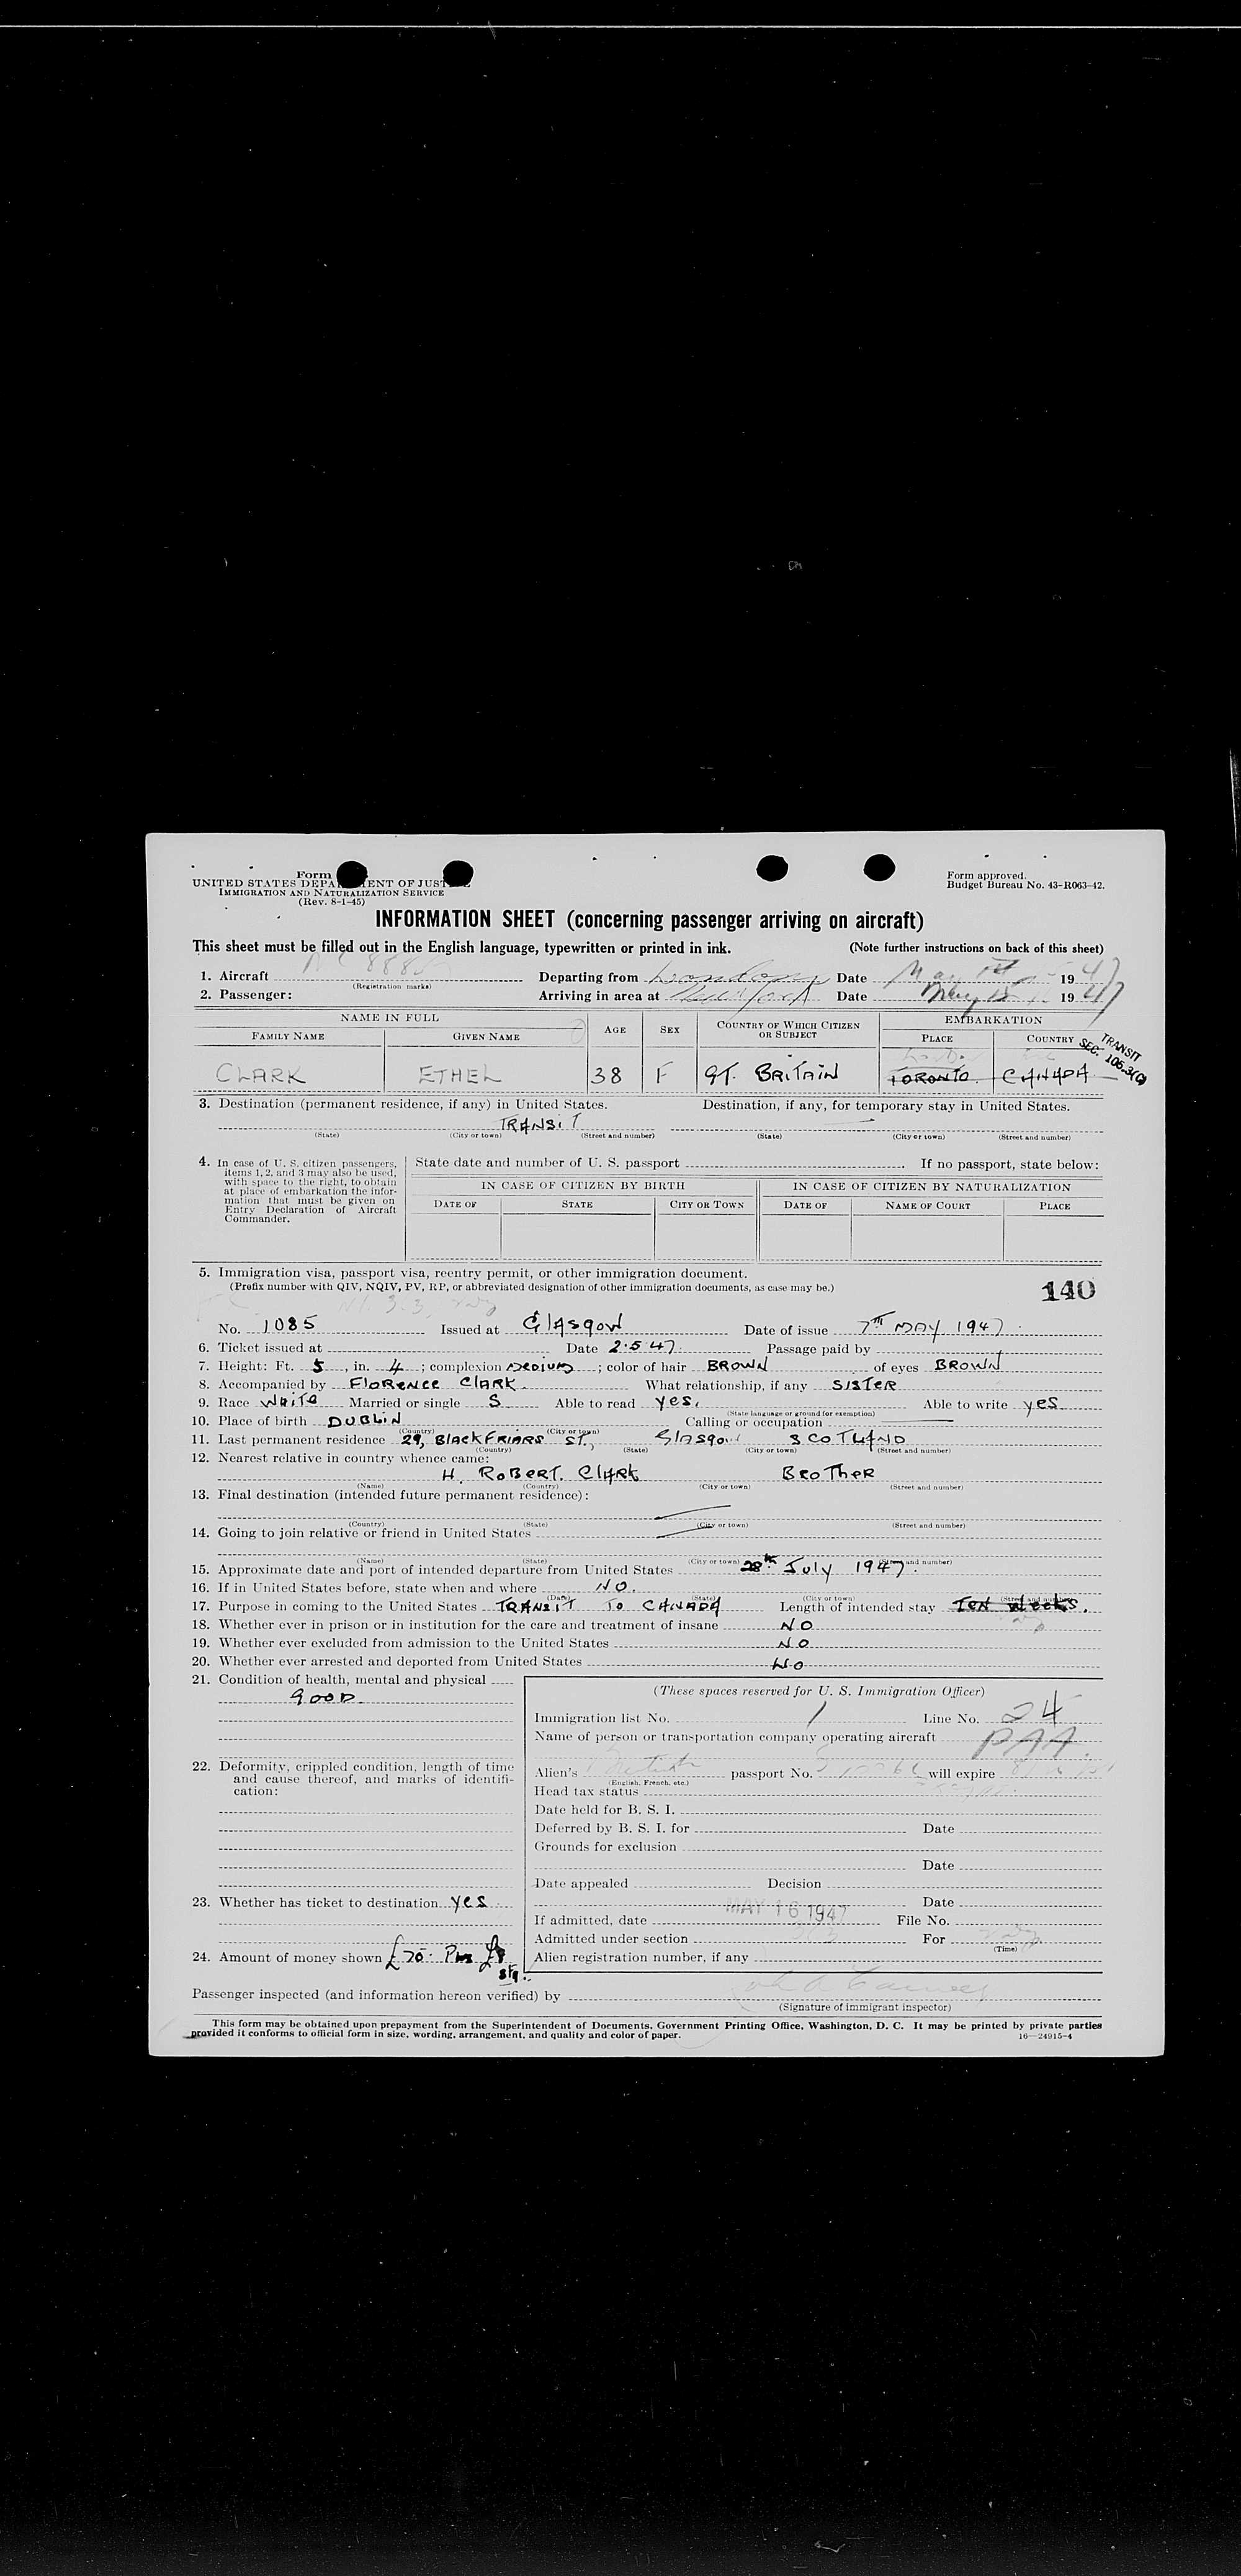 Form
UNITED STATES DEPARTMENT OF JUSTICE
IMMIGRATION AND NATURALIZATION SERVICE
(Rev. 8-1-45)
Form approved.
Budget Bureau No. 43-R063-42.
INFORMATION SHEET (concerning passenger arriving on aircraft)
This sheet must be filled out in the English language, typewritten or printed in ink. (Note further instructions on back of this sheet)
1. Aircraft Departing from London Date May 1947
(Registration marks)
2. Passenger: Arriving in area at New York Date May 15 1947
NAME IN FULL AGE SEX COUNTRY OF WHICH CITIZEN OR SUBJECT EMBARKATION
FAMILY NAME GIVEN NAME PLACE COUNTRY
TRANSIT
SEC. 105.3(C)
CLARK ETHEL 38 F GT. BRITAIN TORONTO CANADA
3. Destination (permanent residence, if any) in United States. Destination, if any, for temporary stay in United States.
TRANSIT
(State) (City or town) (Street and number) (State) (City or town) (Street and number)
4. In case of U. S. citizen passengers, items 1, 2, and 3 may also be used, with space to the right, to obtain at place of embarkation the information that must be given on Entry Declaration of Aircraft Commander.
State date and number of U. S. passport If no passport, state below:
IN CASE OF CITIZEN BY BIRTH IN CASE OF CITIZEN BY NATURALIZATION
DATE OF STATE CITY OR TOWN DATE OF NAME OF COURT PLACE
5. Immigration visa, passport visa, reentry permit, or other immigration document.
(Prefix number with QIV, NQIV, PV, RP, or abbreviated designation of other immigration documents, as case may be.)
140
No. 1085 Issued at Glasgow Date of issue 7TH MAY 1947.
6. Ticket issued at Date 2.5.47. Passage paid by
7. Height: Ft. 5, in. 4; complexion MEDIUM; color of hair BROWN of eyes BROWN
8. Accompanied by FLORENCE CLARK What relationship, if any SISTER
9. Race WHITE Married or single S Able to read yes, Able to write yes
(State language or ground for exemption)
10. Place of birth DUBLIN Calling or occupation
(Country) (City or town)
11. Last permanent residence 29, BLACKFRIARS ST., Glasgow SCOTLAND
(Country) (State) (City or town) (Street and number)
12. Nearest relative in country whence came:
H. ROBERT. CLARK BROTHER
(Name) (Country) (City or town) (Street and number)
13. Final destination (intended future permanent residence):
(Country) (State) (City or town) (Street and number)
14. Going to join relative or friend in United States
(Name) (State) (City or town) (Street and number)
15. Approximate date and port of intended departure from United States 28th July 1947.
16. If in United States before, state when and where NO.
(Date) (State) (City or town) (Street and number)
17. Purpose in coming to the United States TRANSIT TO CANADA Length of intended stay TEN WEEKS.
18. Whether ever in prison or in institution for the care and treatment of insane NO
19. Whether ever excluded from admission to the United States NO
20. Whether ever arrested and deported from United States NO
21. Condition of health, mental and physical
GOOD.
22. Deformity, crippled condition, length of time and cause thereof, and marks of identification:
23. Whether has ticket to destination yes
24. Amount of money shown £70
(These spaces reserved for U. S. Immigration Officer)
Immigration list No. 1 Line No. 24
Name of person or transportation company operating aircraft PAA.
Alien's British passport No. will expire
(English, French, etc.)
Head tax status
Date held for B. S. I.
Deferred by B. S. I. for Date
Grounds for exclusion
Date
Date appealed Decision
Date
MAY 16 1947
If admitted, date File No.
Admitted under section For
(Time)
Alien registration number, if any
Passenger inspected (and information hereon verified) by
(Signature of immigrant inspector)
This form may be obtained upon prepayment from the Superintendent of Documents, Government Printing Office, Washington, D. C. It may be printed by private parties
provided it conforms to official form in size, wording, arrangement, and quality and color of paper. 16—24915-4